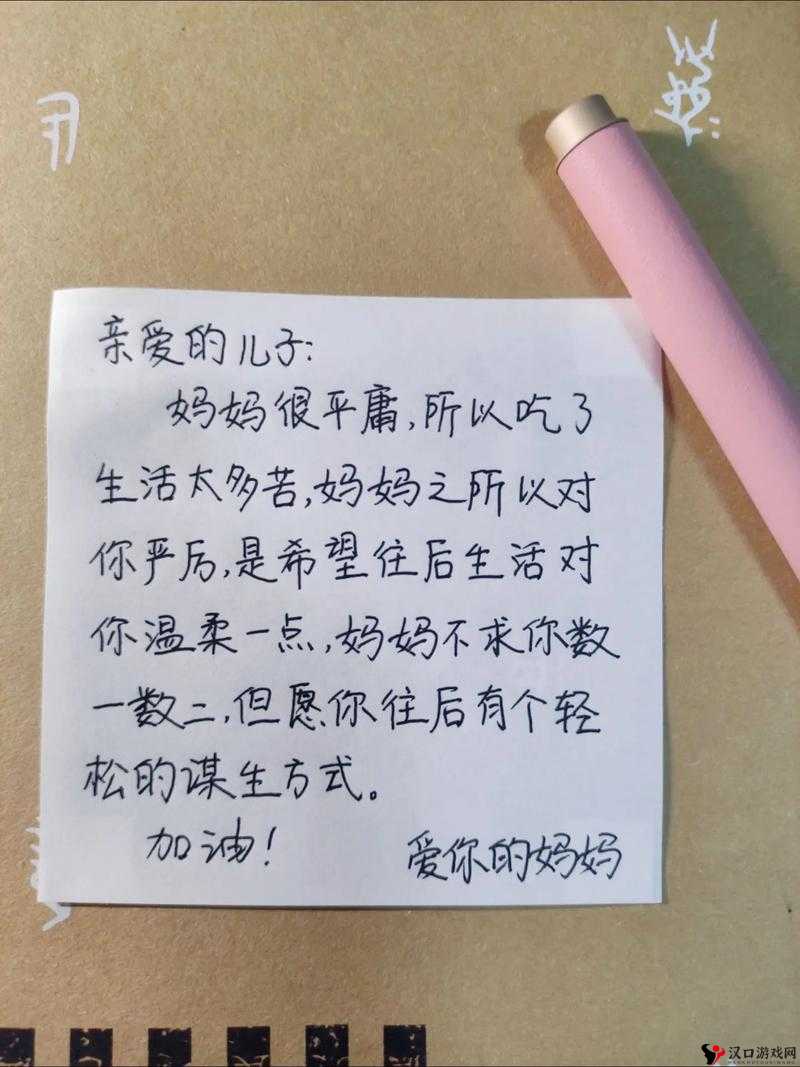 亲爱的儿子:
妈妈很平庸,所以吃了
生活太多苦,妈妈之所以对
你严厉,是希望往后生活对
你温柔一点,妈妈不求你数
一数二,但愿你往后有个轻
松的谋生方式。
加油!
爱你的妈妈
汉口游戏网